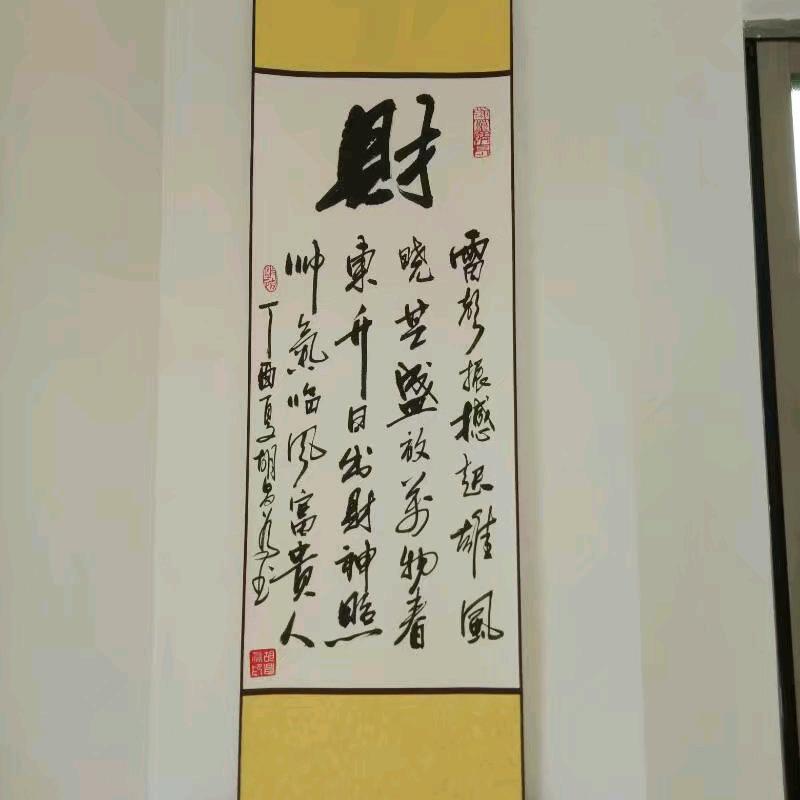 財
雷振撼起雄風
晓芸盛放萬物春
東升日出財神照
帅氣临风富貴人
丁酉夏胡昌书